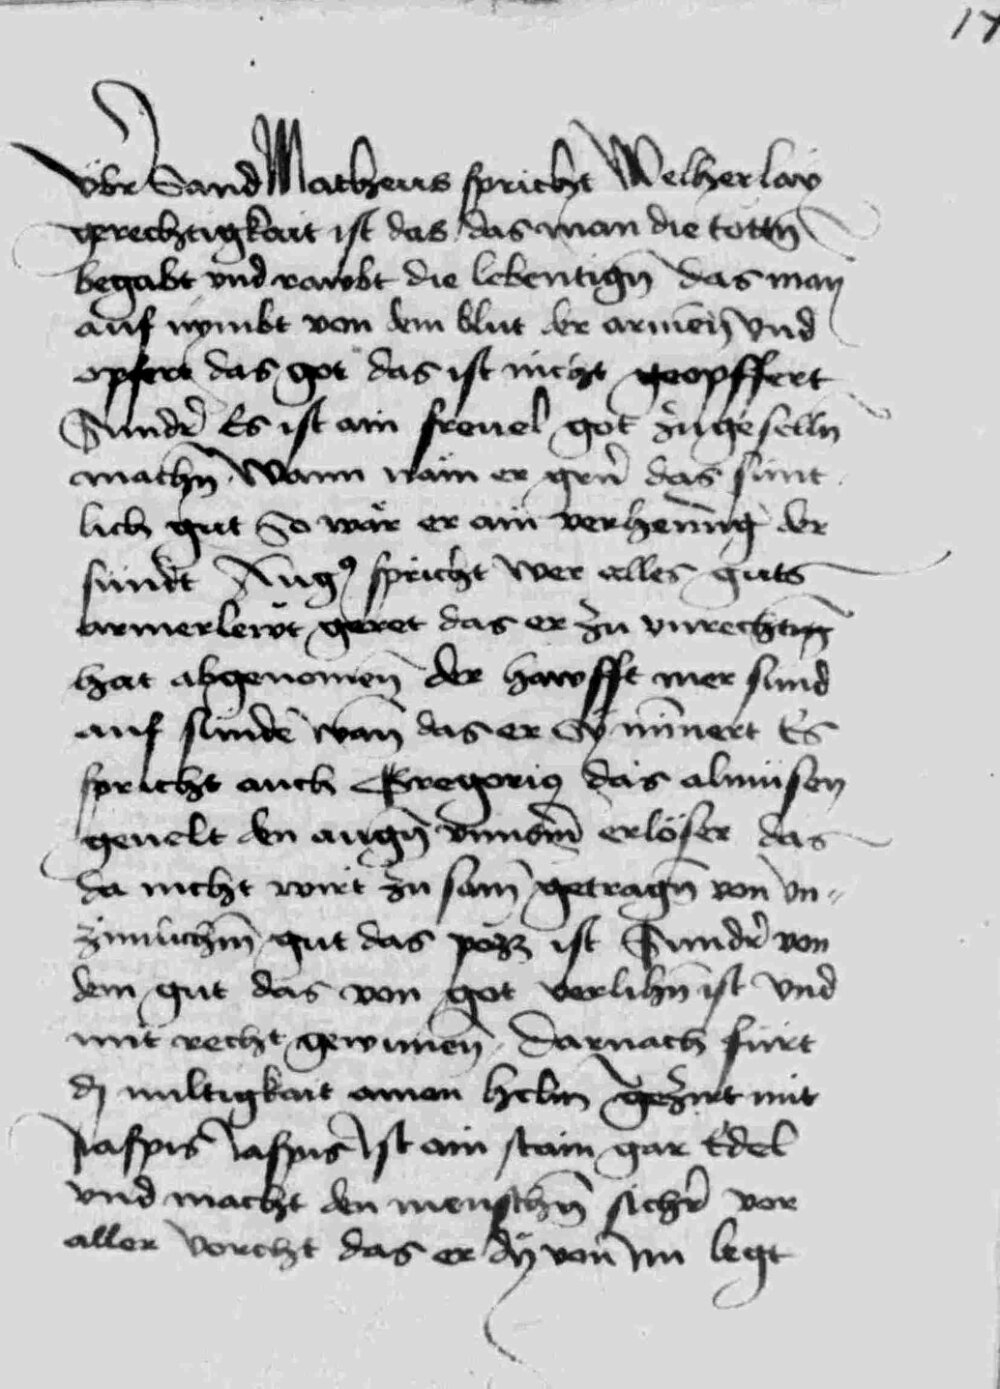 17
vbr Sand Matheus spricht Welherlay
gerechtigkait ist das das man die tottn
begabt vnd rawbt die lebentign das man
auf nymbt von dem blut der armen vnd
opfert das got das ist nicht geopffert
Sundr Es ist ain freuel got zugeselln
machn Wann näm er gern das sünt
lich gut So wär er ain verhenng der
sündt Aug9 spricht wer alles guts
armerlewt geret das er zu vnrechtn
hat abgenomen der hawfft mer sund
auf sunde wan das er Sy minnert Es
spricht auch Gregorius das almusen
geuelt den augn vnnsers erlöser das
da nicht wirt zu sam getragn von vn-
zimlichm gut das pözz ist Sundr von
dem gut das von got verlihn ist vnd
mit recht gewunen Darnach fürt
dy miltigkait ainen helm gezirt mit
Jaspis Jaspis Ist ain stain gar Edel
vnd macht den menschn sichr vor
aller vorcht das er dy von Im legt